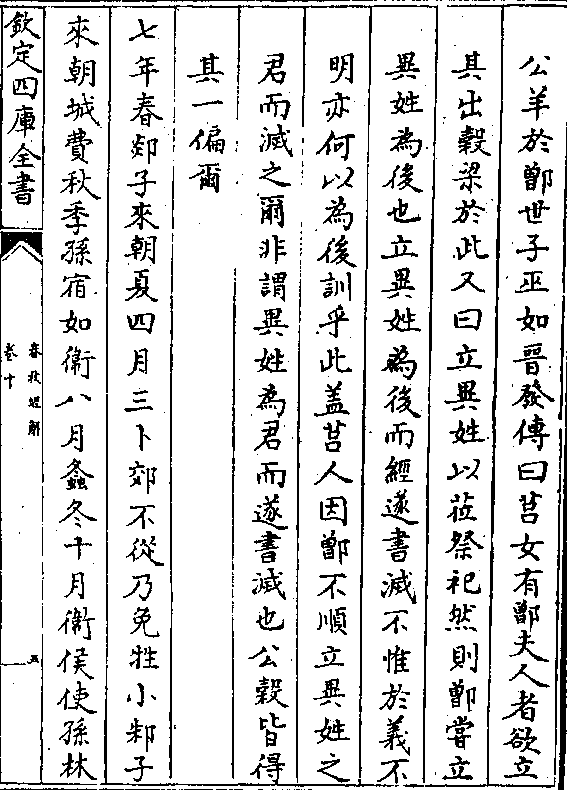 公羊於鄫世子巫如晉發傳曰莒女有鄫夫人者欲立
其出榖梁於此又曰立異姓以莅祭祀然則鄫嘗立
異姓為後也立異姓為後而經遂書滅不惟於義不
明亦何以為後訓乎此盖莒人因鄫不順立異姓之
君而滅之爾非謂異姓為君而遂書滅也公榖皆得
其一偏爾
七年春郯子來朝夏四月三卜郊不從乃免牲小邾子
來朝城費秋季孫宿如衛八月螽冬十月衛侯使孫林
欽定四庫全書
春秋經解
卷十
五